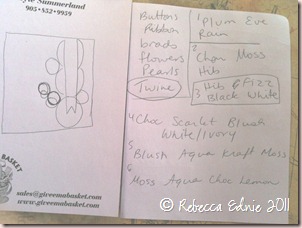 Summerland
905•852•9959
BASKET
sales@giveemabasket.com
www.giveemabasket.com
Buttons
Ribbon
brads
flowers
Pearls
Twine
1 Plum Eve
Rain
2 Choc Moss
Hib
3 Hib Gfizz
Black White
4 Choc Scarlet Blush
White/Ivory
5
Blush Aqua Kraft Moss
6
Moss Aqua Choc Lemon
© Rebecca Ednie 2011